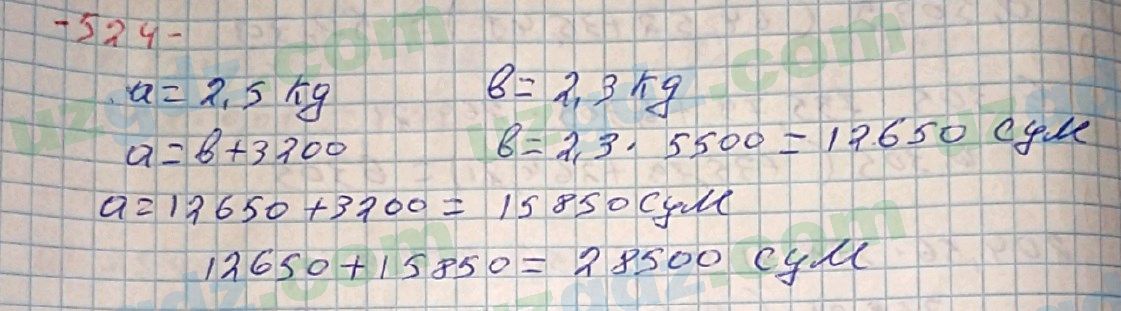 -524-
a = 2,5 kg b = 2,3 kg
a = b + 3200 b = 2,3 · 5500 = 12650 сум
a = 12650 + 3200 = 15850 сум
12650 + 15850 = 28500 сум